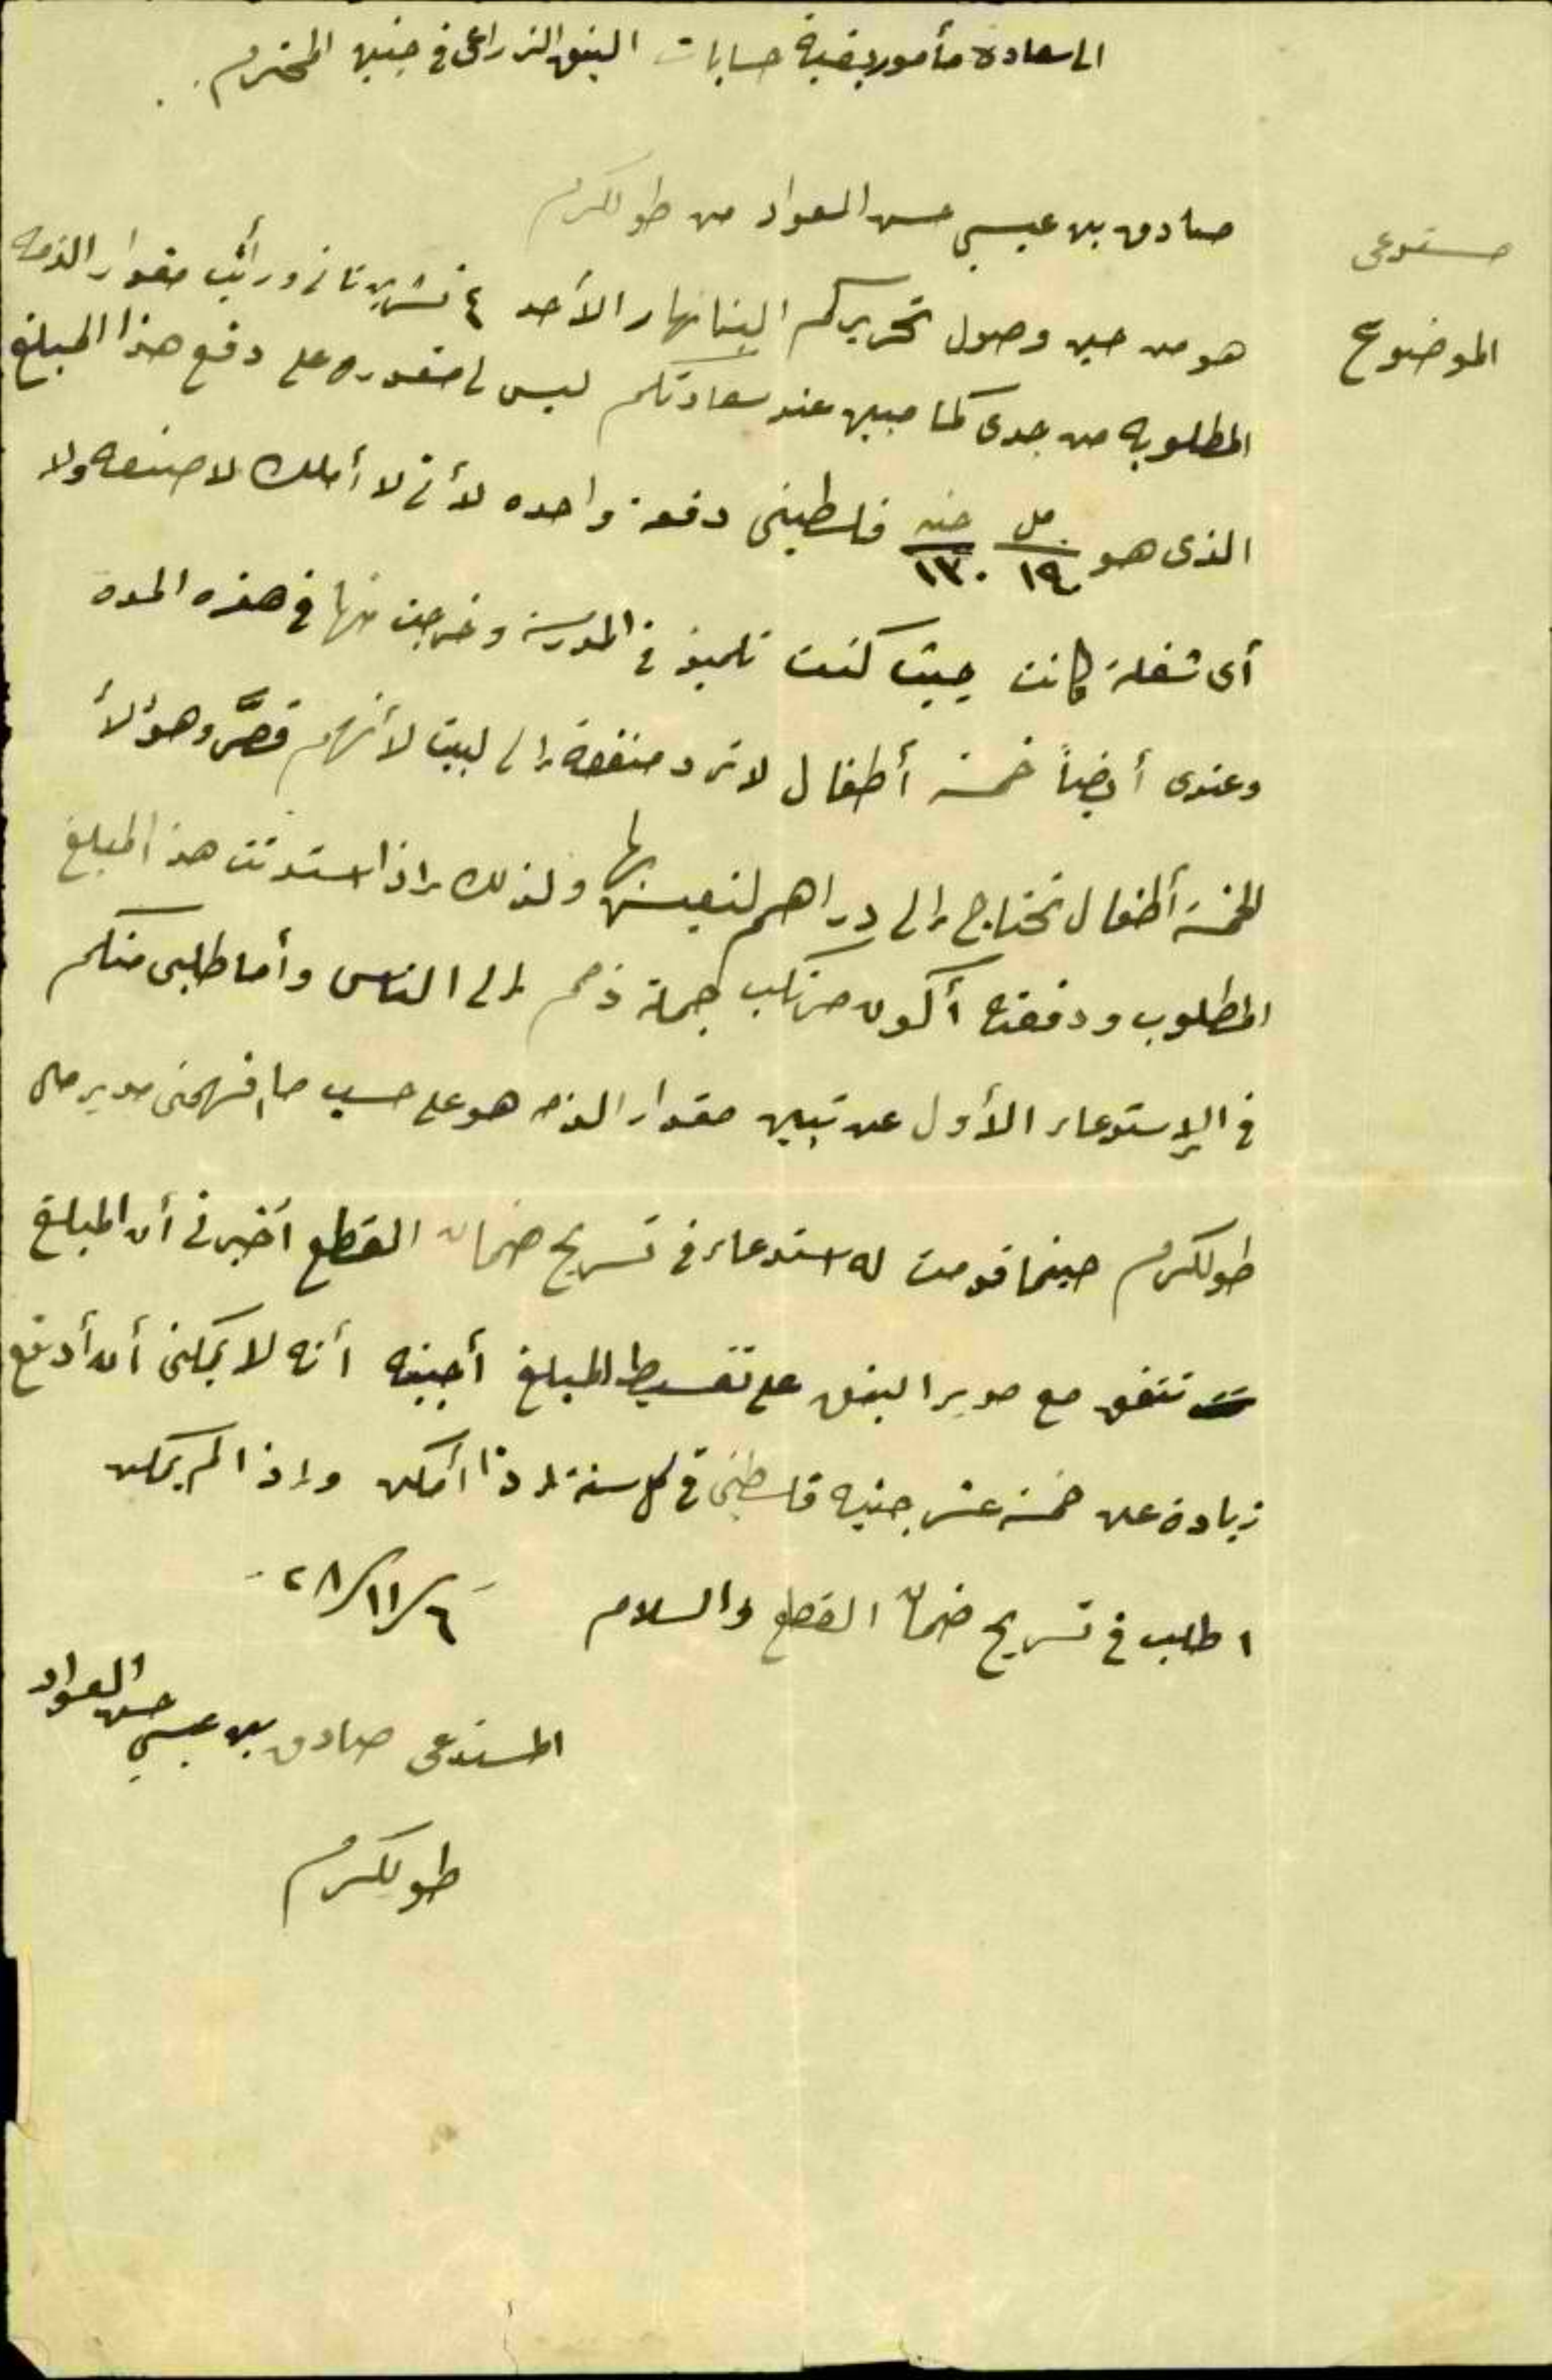 الى سعادة مأمور بقية حسابات البنق الزراعى في جنين المحترم
مستدعى صادق بن عيسى حسن العواد من طولكرم
الموضوع هو من حين وصول تحريركم الينا نهار الأحد ٤ تشرين ثانى ورأيت مقدار الذمه
المطلوبه من جدى كما مبين عند سعادتكم ليس لى مقدوره على دفع هذا المبلغ
الذى هو مل ١٩٤ جنيه ١٣٠ فلسطينى دفعة واحده لأنى لا أملك لا صنعه ولا
أى شغلة كانت حيث كنت تلميذ في المدرسة وخرجت منها في هذه المده
وعندى أيضاً خمسة أطفال لا ترد منفعة إلى لبيت لأنهم قصَّر وهؤلأ
الخمسة أطفال تحتاج إلى دراهم لنعيش بها ولذلك إذا استدنت هذا المبلغ
المطلوب ودفعته أكون مرتكب جملة ذمم إلى الناس وأما طلبى منكم
في الإستدعاء الأول عن تبين مقدار الذمه هو على حسب ما فهمنى مدير مال
طولكرم حينما قدمت له استدعاء في تسريح ضمان القطع أخبرنى أن المبلغ
تتفق مع مدير البنق على تقسيط المبلغ أجبته أنه لا يمكنى أن أدفع
زيادة عن خمسة عشر جنيه فلسطينى في كل سنة إذا أمكن وإذا لم يمكن
اطلب في تسريح ضمان القطع والسلام ٢٨/١١/٦
المستدعى صادق بن عيسى حسن العواد
طولكرم